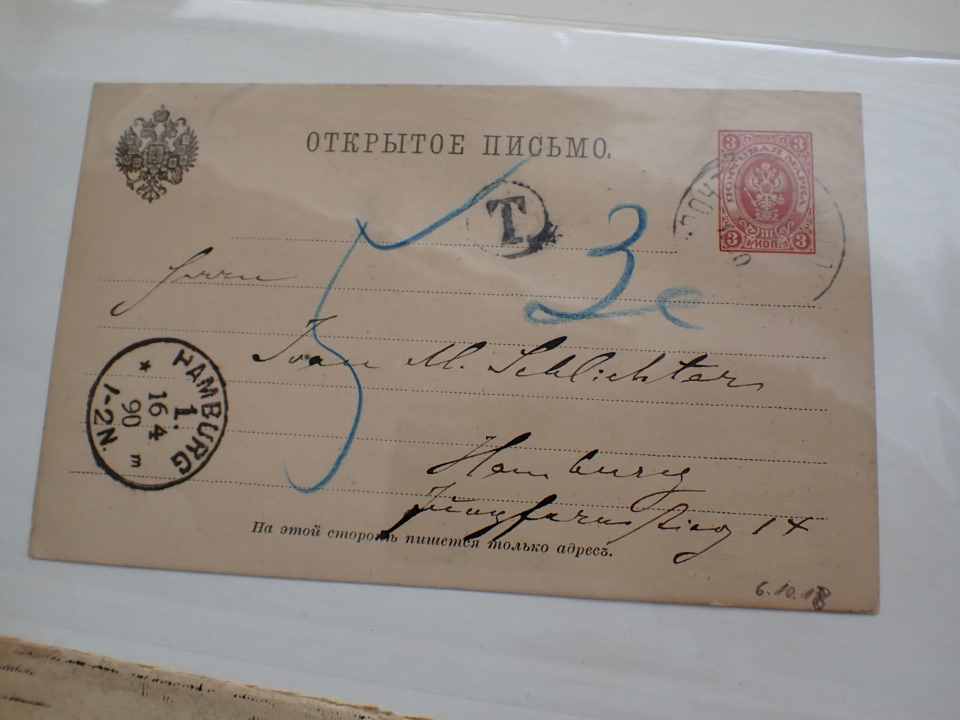 ОТКРЫТОЕ ПИСЬМО.
3 3
ПОЧТОВАЯ МАРКА
3 КОП. 3
ПОЧТ
T.
5
3
Herrn
Ivan M. Schlichter
Hamburg
14
HAMBURG
1.
16 4
90
1-2N.
На этой сторонѣ пишется только адресъ.
6.10.18